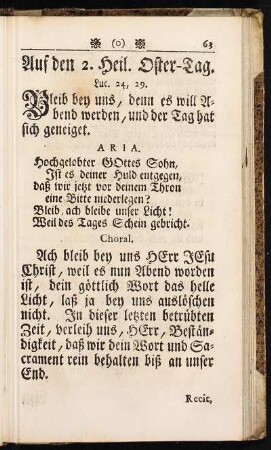 (0) 63
Auf den 2. Heil. Oster-Tag.
Luc. 24, 29.
Bleib bey uns, denn es will A-
bend werden, und der Tag hat
sich geneiget.
ARIA.
Hochgelobter GOttes Sohn,
Ist es deiner Huld entgegen,
daß wir jetzt vor deinem Thron
eine Bitte niederlegen?
Bleib, ach bleibe unser Licht!
Weil des Tages Schein gebricht.
Choral.
Ach bleib bey uns HErr JEsu
Christ, weil es nun Abend worden
ist, dein göttlich Wort das helle
Licht, laß ja bey uns auslöschen
nicht. In dieser letzten betrübten
Zeit, verleih uns, HErr, Bestän-
digkeit, daß wir dein Wort und Sa-
crament rein behalten biß an unser
End.
Recit,